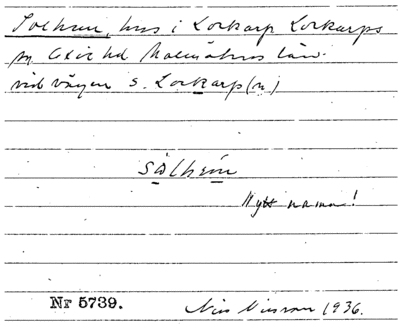 Solhem, hus i Lockarp Lockarps
sn Oxie hd Malmöhus län.
vid vägen s. Lockarp (n)
sólhèm
Nytt namn!
Nr 5739.
Nils Nilsson 1936.